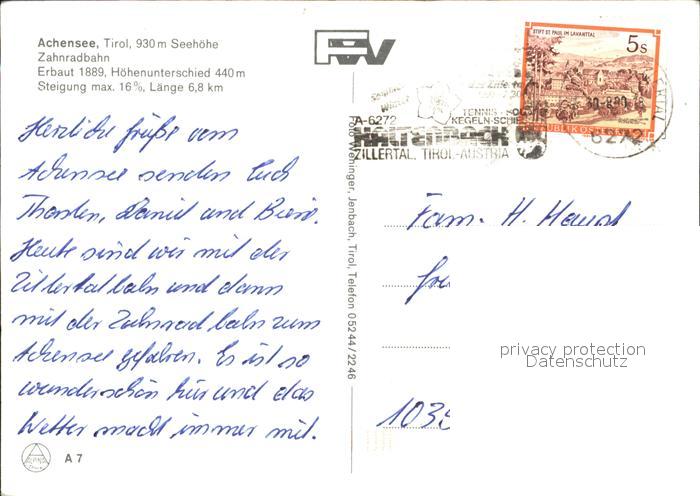 Achensee, Tirol, 930 m Seehöhe
Zahnradbahn
Erbaut 1889, Höhenunterschied 440 m
Steigung max. 16%, Länge 6,8 km
STIFT ST. PAUL IM LAVANTTAL
5 s
REPUBLIK ÖSTERREICH
A-6272
TENNIS
KEGELN
KALTENBACH
ZILLERTAL, TIROL-AUSTRIA
6272
Herzliche Grüße vom
Achensee senden Euch
Thorsten, Daniel und
Heute sind wir mit der
Zillertalbahn und dann
mit der Zahnradbahn zum
Achensee gefahren. Es ist so
wunderschön hier und das
Wetter macht immer mit.
Foto Weninger, Jenbach, Tirol, Telefon 0 52 44 / 2246
Fam. H.
1035
privacy protection
Datenschutz
A 7